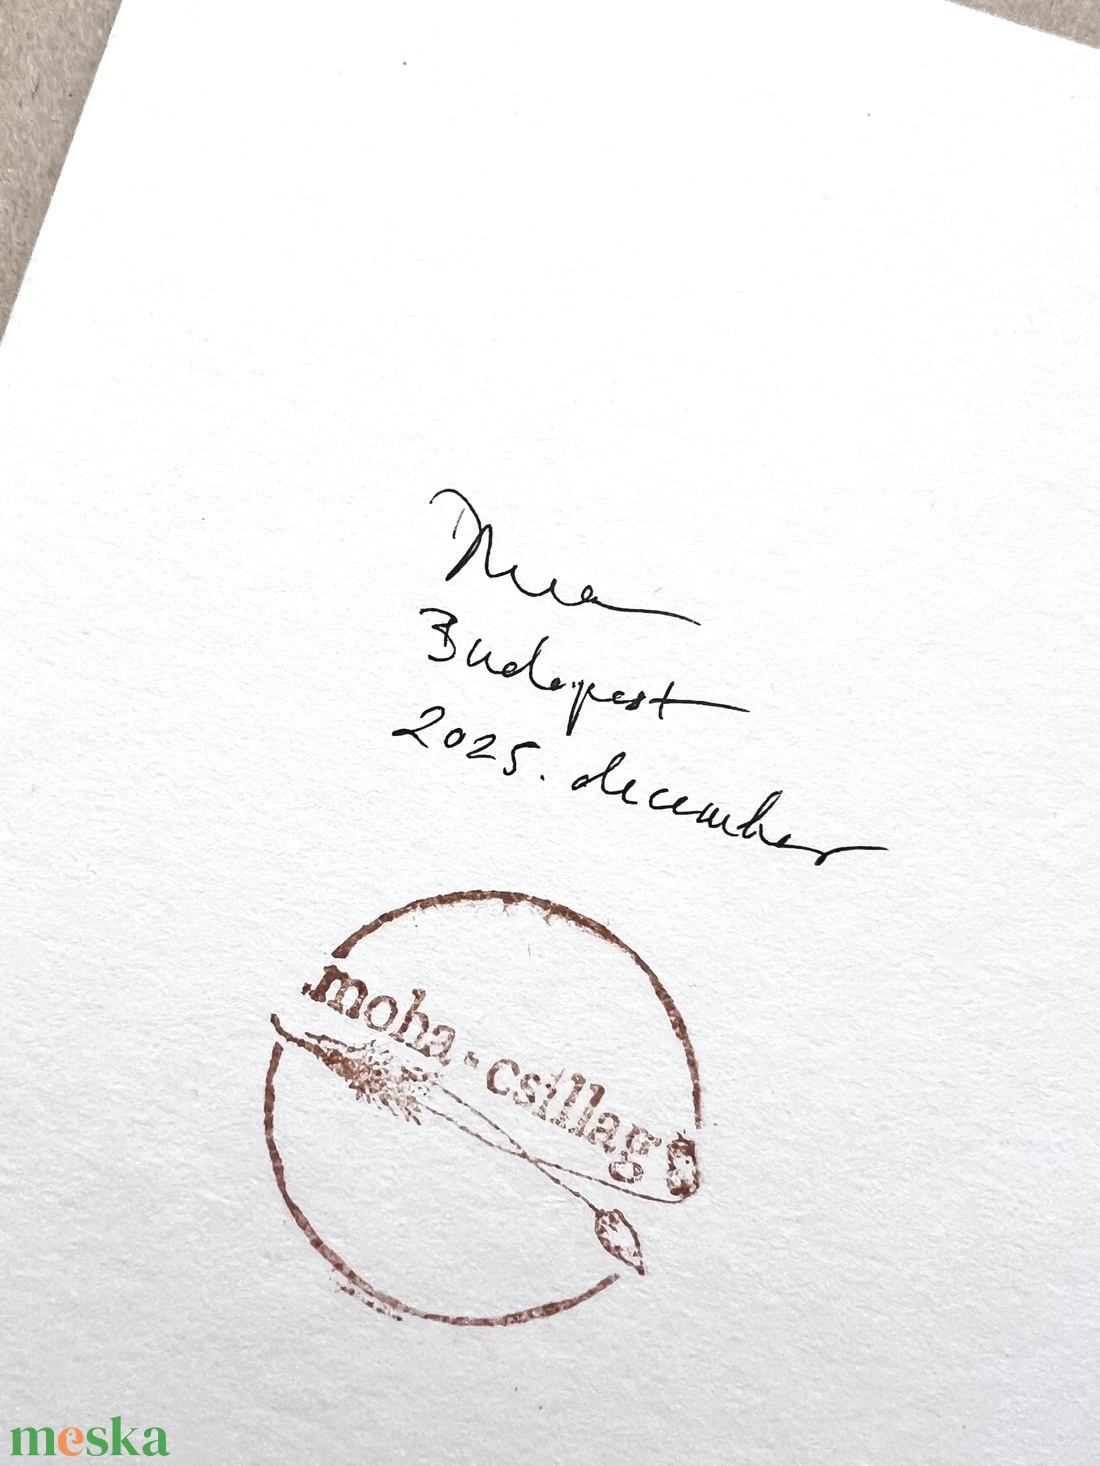 Budapest
2025. december
moha·csillag
meska